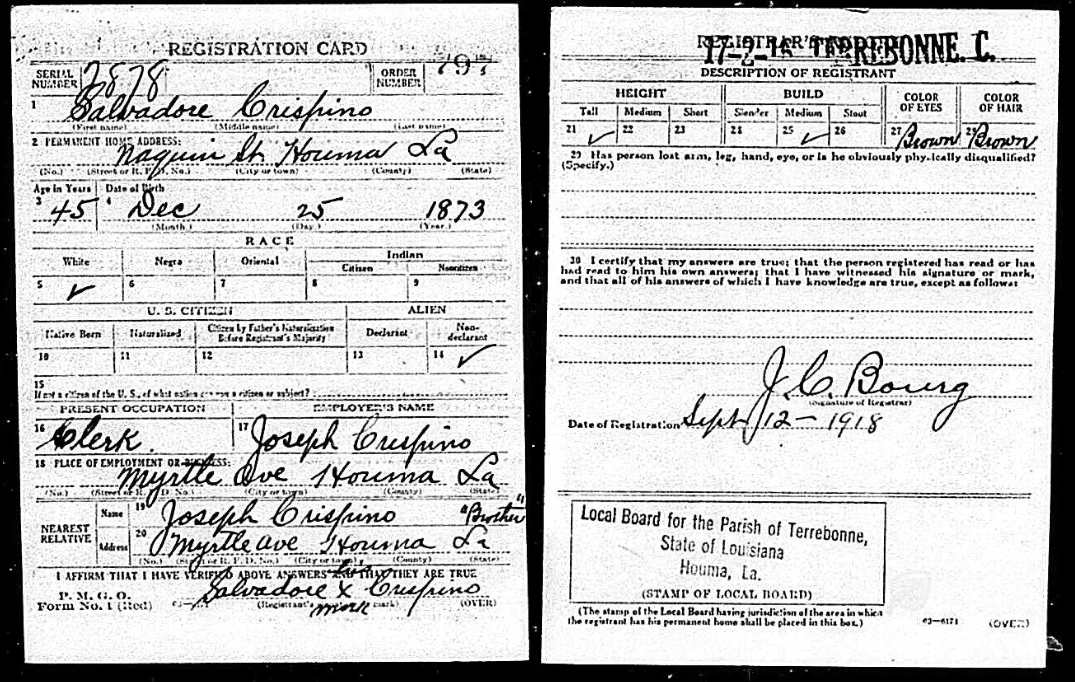 REGISTRATION CARD
SERIAL NUMBER 2878 ORDER NUMBER
1 Salvadore Crispino
(First name) (Middle name) (Last name)
2 PERMANENT HOME ADDRESS:
Naquin St. Houma La
(No.) (Street or R. F. D. No.) (City or town) (County) (State)
Age in Years Date of Birth
3 45 4 Dec 25 1873
(Month.) (Day.) (Year.)
RACE
White Negro Oriental Indian
Citizen Noncitizen
5 ✓ 6 7 8 9
U. S. CITIZEN ALIEN
Native Born Naturalized Citizen by Father's Naturalization Before Registrant's Majority Declarant Non-declarant
10 11 12 13 14 ✓
15
If not a citizen of the U. S., of what nation are you a citizen or subject?
PRESENT OCCUPATION EMPLOYER'S NAME
16 Clerk. 17 Joseph Crispino
18 PLACE OF EMPLOYMENT OR BUSINESS:
Myrtle Ave Houma La
(No.) (Street or R. F. D. No.) (City or town) (County) (State)
NEAREST RELATIVE Name 19 Joseph Crispino "Brother"
Address 20 Myrtle ave Houma La
(No.) (Street or R. F. D. No.) (City or town) (County) (State)
I AFFIRM THAT I HAVE VERIFIED ABOVE ANSWERS AND THAT THEY ARE TRUE
P. M. G. O.
Form No. 1 (Red) Salvadore his X Crispino
(Registrant's mark) mark (OVER)
REGISTRAR'S
17-2-16 TERREBONNE. C.
DESCRIPTION OF REGISTRANT
HEIGHT BUILD COLOR OF EYES COLOR OF HAIR
Tall Medium Short Slender Medium Stout
21 ✓ 22 23 24 25 ✓ 26 27 Brown 28 Brown
29 Has person lost arm, leg, hand, eye, or is he obviously physically disqualified?
(Specify.)
30 I certify that my answers are true; that the person registered has read or has
had read to him his own answers; that I have witnessed his signature or mark,
and that all of his answers of which I have knowledge are true, except as follows:
J. C. Bourg
(Signature of Registrar)
Date of Registration Sept 12 - 1918
Local Board for the Parish of Terrebonne,
State of Louisiana
Houma, La.
(STAMP OF LOCAL BOARD)
(The stamp of the Local Board having jurisdiction of the area in which
the registrant has his permanent home shall be placed in this box.)
03-6171 (OVER)